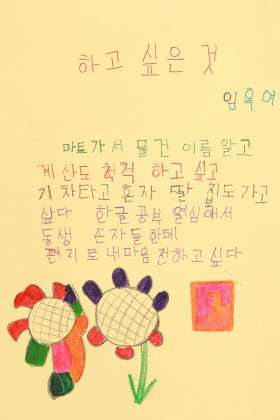 하고 싶은 것
임옥여
마트가서 물건 이름 알고
계산도 척척 하고 싶고
기차타고 혼자 딸 집도 가고
싶다 한글공부 열심해서
동생 손자들한테
편지로 내마음 전하고 싶다